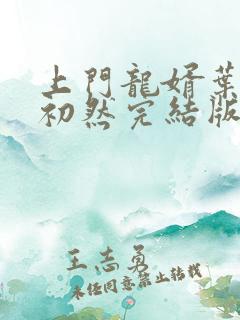 上門龍婿葉
初然完結版
王志勇
未經同意禁止轉載